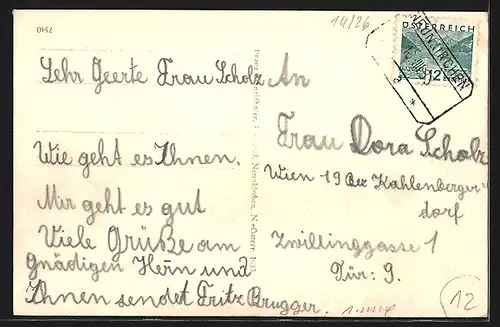 7540
14/26
ÖSTERREICH
12
NEUNKIRCHEN
Sehr Geerte Frau Scholz
Wie geht es Ihnen.
Mir geht es gut
Viele Grüße am
gnädigen Herrn und
Ihnen sendet Fritz Brugger.
An
Frau Dora Scholz
Wien 19 Kahlenberger
dorf
Zwillinggasse 1
Tür: 9.
12